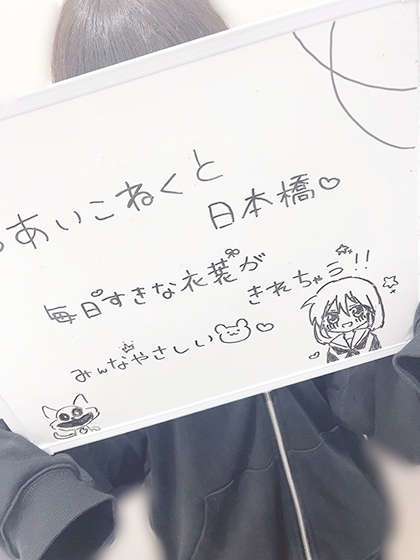 あいこねくと
日本橋♡
毎日すきな衣装が
きれちゃう!!
みんなやさしい♡